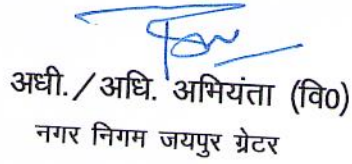 अधी./अधि. अभियंता (वि0)
नगर निगम जयपुर ग्रेटर